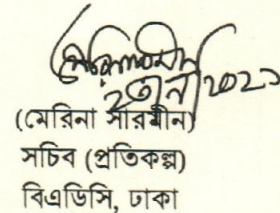 (মেরিনা সারমীন)
সচিব (প্রতিকল্প)
বিএডিসি, ঢাকা